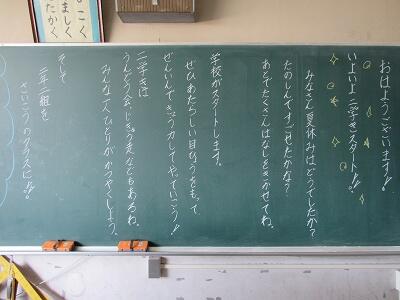 おはようございます!!
いよいよ二学きスタート!!
みなさん夏休みはどうでしたか?
たのしんですごせたかな?
あとでたくさんはなしをきかせてね。
学校がスタートします。
ぜひあたらしい目ひょうをもって、
ぜんいんできょう力してやっていこう!!
二学きは
うんどう会、じきゅう走などもあるね。
みんな一人ひとりがかつやくしよう。
そして
二年二組を
さいこうのクラスに!!
こく
ましく
たかく